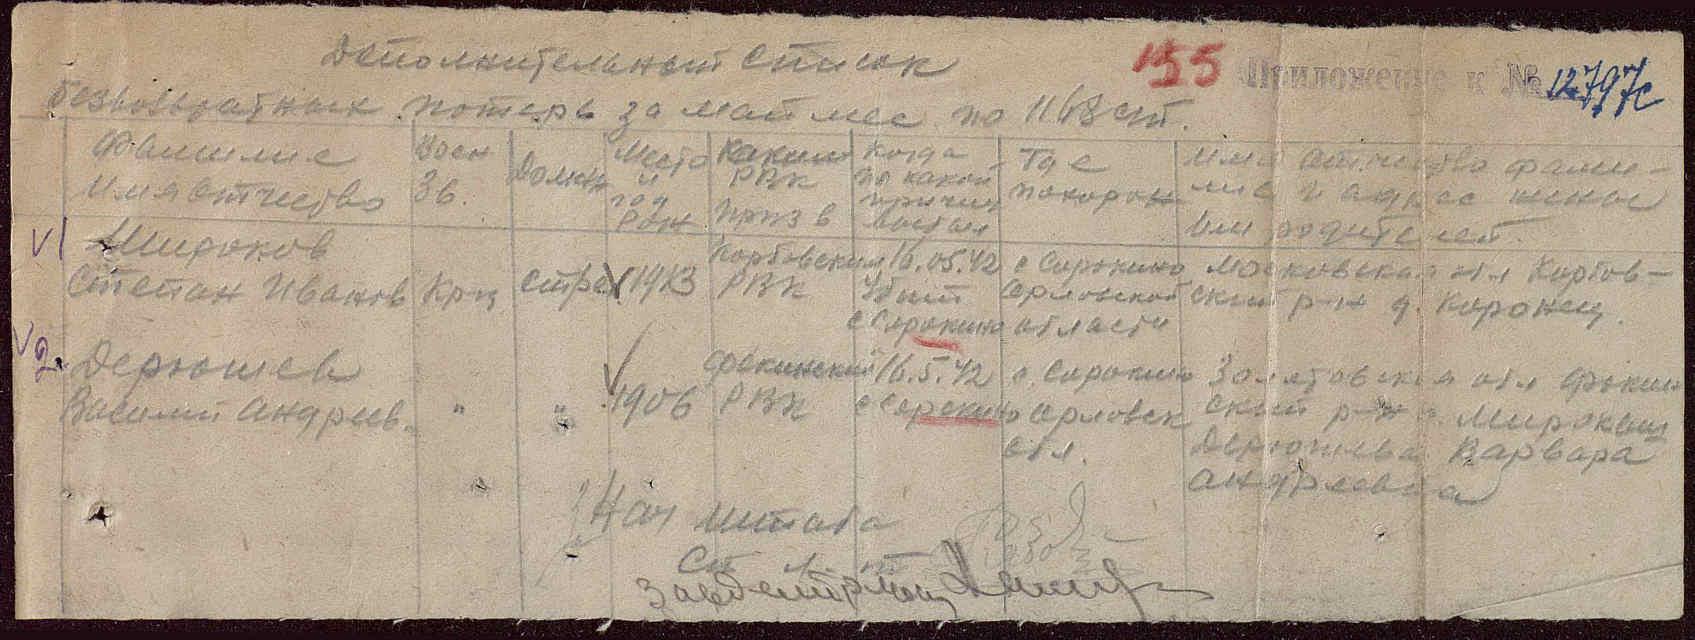 Дополнительный список
155
Приложение к № 12797с
безвозвратных потерь за май мес по 1168 сп.
Фамилие
Имя отчество
Воен
Зв.
Должн
Место
и
год
рож
Каким
РВК
призв
Когда
по какой
причин
выбыл
Где
похорон
Имя отчество фами-
лие и адрес жены
или родителей.
V1
Широков
Степан Иванов
Кр-ц
стре
1913
РВК
16.05.42
Убит
с Сорокино
с Сорокино
Орловской
области
Московская обл
ский р-н д.
V 2.
Дерюшев
Василий Андреев.
"
"
1906
РВК
16.5.42
с Сорокино
с. Сорокино
Орловск
обл.
обл
ский р-н
Дерюшева Варвара
Андреевна
Нач штаба
Ст